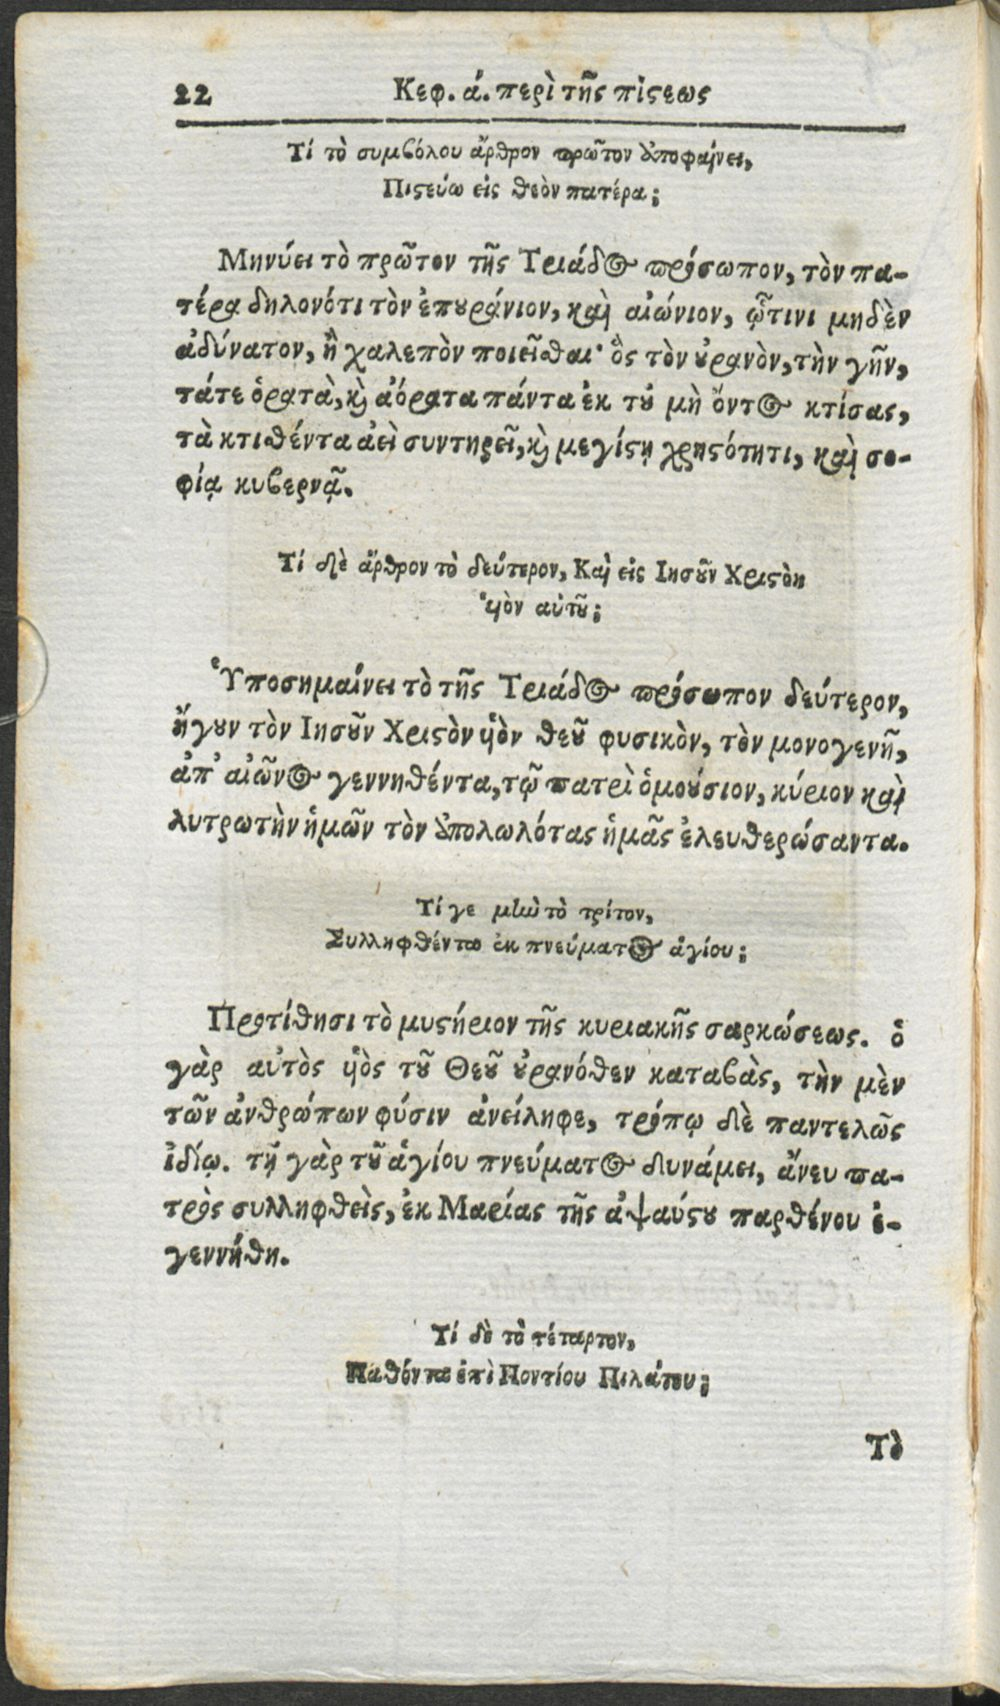 22 Κεφ. ά. περὶ τῆς πίϛεως
Τί τὸ συμβόλου ἄρθρον πρῶτον ὑποφαίνει,
Πιϛεύω εἰς θεὸν πατέρα;
Μηνύει τὸ πρῶτον τῆς Τριάδος πρόσωπον, τὸν πα-
τέρα δηλονότι τὸν ἐπουράνιον, καὶ αἰώνιον, ᾧτινι μηδὲν
ἀδύνατον, ἢ χαλεπὸν ποιεῖσθαι· ὃς τὸν οὐρανὸν, τὴν γῆν,
τάτε ὁρατὰ, κὶ ἀόρατα πάντα ἐκ τοῦ μὴ ὄντος κτίσας,
τὰ κτισθέντα ἀεὶ συντηρεῖ, κὶ μεγίϛῃ χρηϛότητι, καὶ σο-
φίᾳ κυβερνᾷ.
Τί δὲ ἄρθρον τὸ δεύτερον, Καὶ εἰς Ιησοῦν Χριϛὸν
ὑιὸν αὐτοῦ;
Ὑποσημαίνει τὸ τῆς Τριάδος πρόσωπον δεύτερον,
ἤγουν τὸν Ιησοῦν Χριϛὸν ὑιὸν θεοῦ φυσικὸν, τὸν μονογενῆ,
ἀπ' αἰῶνος γεννηθέντα, τῷ πατρὶ ὁμοούσιον, κύριον καὶ
λυτρωτὴν ἡμῶν τὸν ἀπολωλότας ἡμᾶς ἐλευθερώσαντα.
Τί γε μὴν τὸ τρίτον,
Συλληφθέντα ἐκ πνεύματος ἁγίου;
Προτίθησι τὸ μυϛήριον τῆς κυριακῆς σαρκώσεως. ὁ
γὰρ αὐτὸς ὑιὸς τοῦ Θεοῦ οὐρανόθεν καταβὰς, τὴν μὲν
τῶν ἀνθρώπων φύσιν ἀνείληφε, τρόπῳ δὲ παντελῶς
ἰδίῳ. τῇ γὰρ τοῦ ἁγίου πνεύματος δυνάμει, ἄνευ πα-
τρὸς συλληφθεὶς, ἐκ Μαρίας τῆς ἀψαύϛου παρθένου ἐ-
γεννήθη.
Τί δὲ τὸ τέταρτον,
Παθόντα ἐπὶ Ποντίου Πιλάτου;
Τὸ